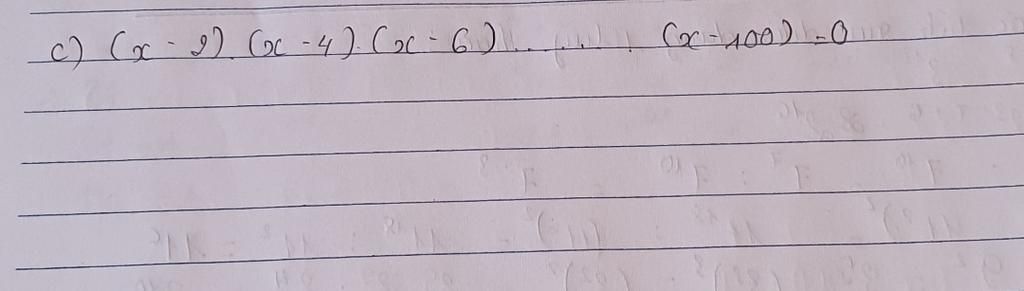 c) (x - 2) (x - 4). (x - 6) . . . . . . (x - 100) = 0